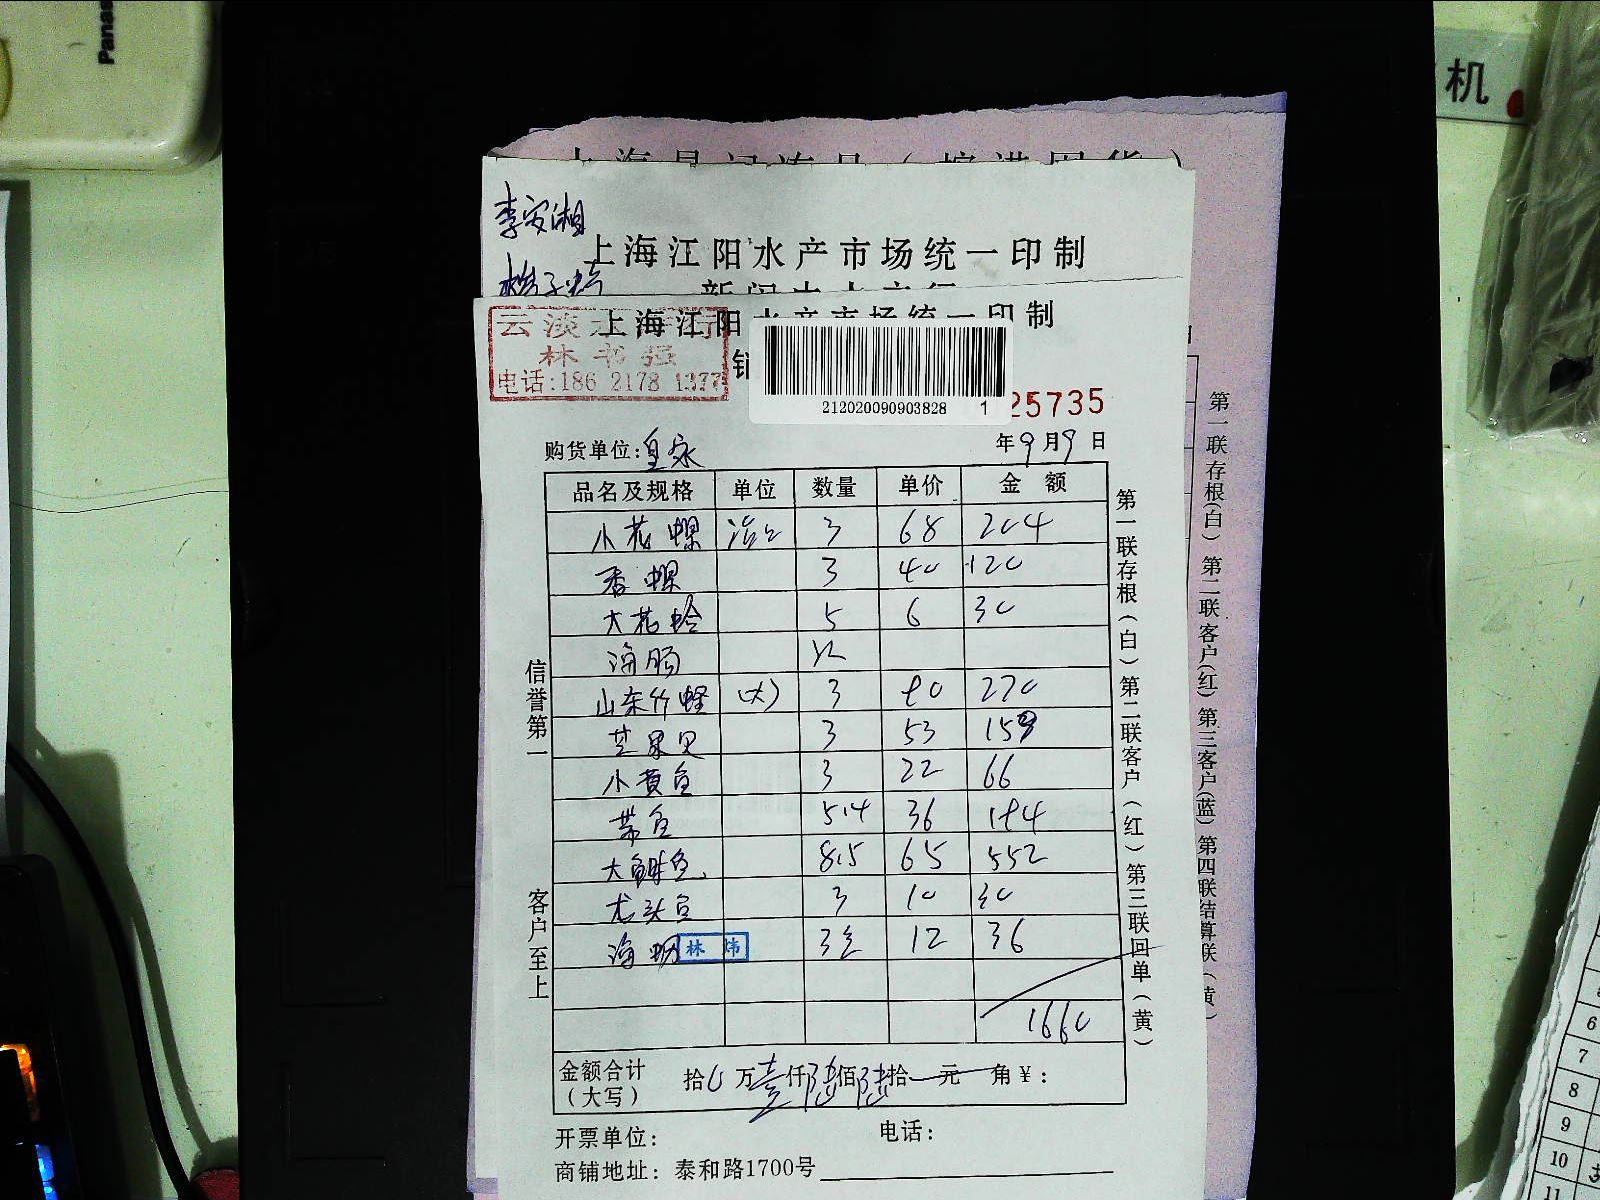 Panas
机
李安湘
上海江阳水产市场统一印制
上海江阳水产市场统一印制
林书强
电话:186 2178 1377
212020090903828 1
25735
购货单位:皇家
年9月9日
品名及规格 单位 数量 单价 金额
小花螺 3 68 204
香螺 3 40 120
大花蛤 5 6 30
海肠
山东竹蛏 (大) 3 90 270
芒果贝 3 53 159
小黄鱼 3 22 66
带鱼 5.4 36 194
大鲜鱼 8.5 65 552
龙头鱼 3 10 30
海蛎 3 12 36
林炜
1660
金额合计(大写) 拾0万壹仟陆佰陆拾元角¥:
开票单位: 电话:
商铺地址:泰和路1700号
信誉第一
客户至上
第一联存根(白)第二联客户(红)第三联回单(黄)
第一联存根(白)第二联客户(红)第三客户(蓝)第四联结算联(黄)
6
7
8
9
10
11